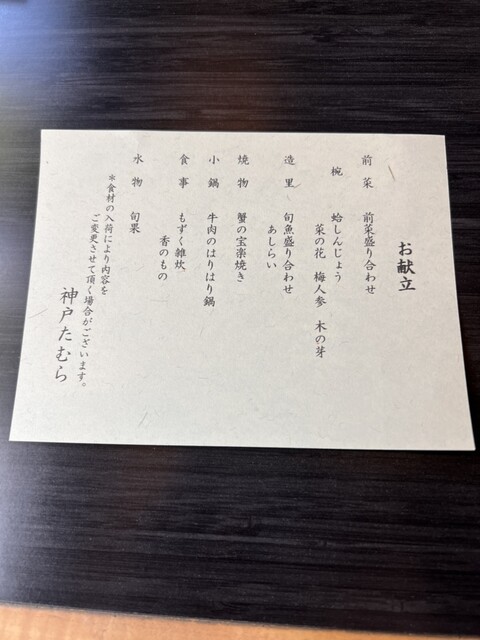 お献立
前菜 前菜盛り合わせ
椀 蛤しんじょう
菜の花 梅人参 木の芽
造里 旬魚盛り合わせ
あしらい
焼物 蟹の宝楽焼き
小鍋 牛肉のはりはり鍋
食事 もずく雑炊
香のもの
水物 旬果
*食材の入荷により内容を
ご変更させて頂く場合がございます。
神戸たむら